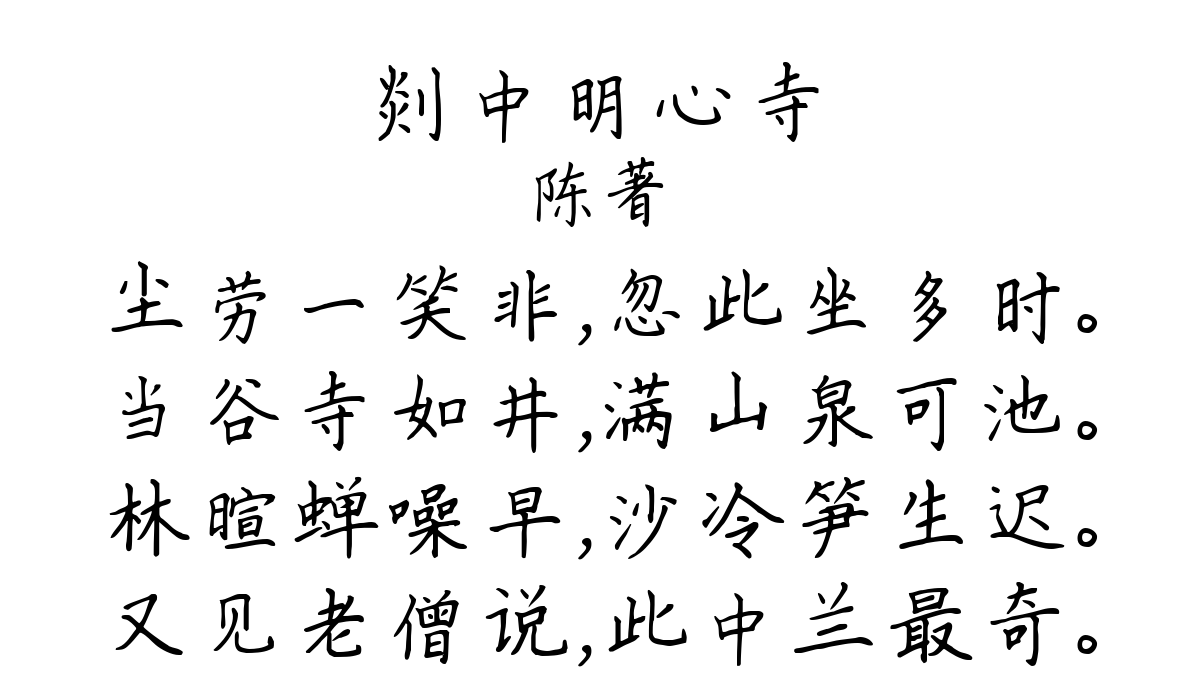 剡中明心寺
陈著
尘劳一笑非,忽此坐多时。
当谷寺如井,满山泉可池。
林暄蝉噪早,沙冷笋生迟。
又见老僧说,此中兰最奇。